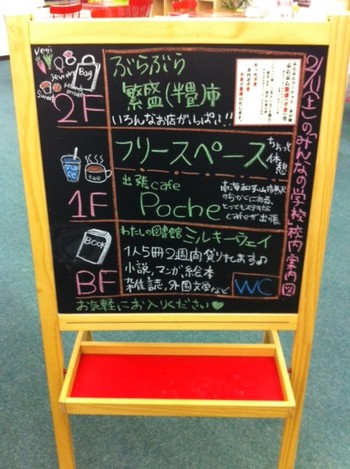 9/1(土)の「みんなの学校」校内案内図
vegi
Bag
Sweets
Hand made
2F
ぶらぶら
繁盛(半畳)市
いろんなお店がいっぱい!!
フリースペース
ちょっと休憩
Juice
1F
出張cafe
Poche
南海和歌山市駅
のちかくにある、
とってもステキな
cafeが出張
BOOK
BF
わたしの図書館 ミルキーウェイ
1人5冊2週間貸りれます♪
小説、マンガ、絵本
雑誌、外国文学など
WC
お気軽にお入りください♥